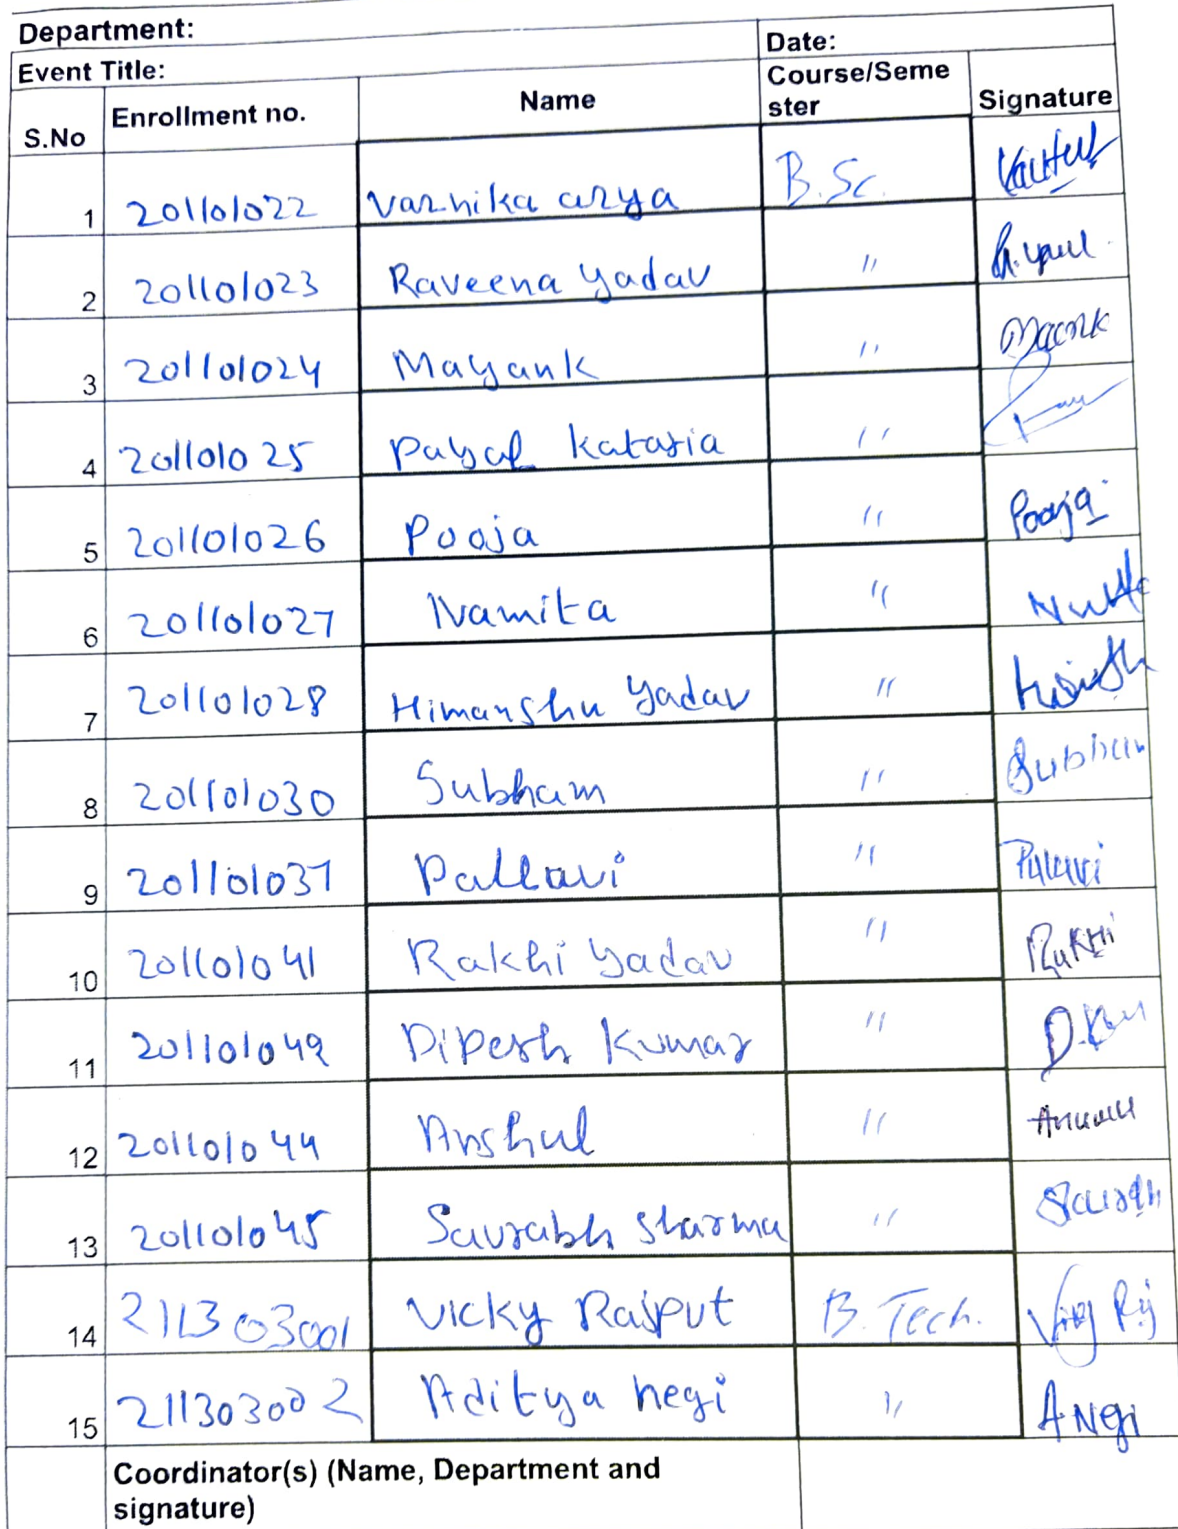 Department:
Date:
Event Title:
S.No Enrollment no. Name Course/Seme ster Signature
1 201101022 Varnika arya B.Sc.
2 201101023 Raveena Yadav "
3 201101024 Mayank "
4 201101025 Payal Kataria "
5 201101026 Pooja " Pooja
6 201101027 Namita "
7 201101028 Himanshu Yadav "
8 201101030 Subham " Subham
9 201101037 Pallavi "
10 201101041 Rakhi Yadav " Rakhi
11 201101042 Dipesh Kumar "
12 201101044 Anshul "
13 201101045 Saurabh Sharma "
14 211303001 Vicky Rajput B. Tech.
15 211303002 Aditya negi " A Negi
Coordinator(s) (Name, Department and
signature)